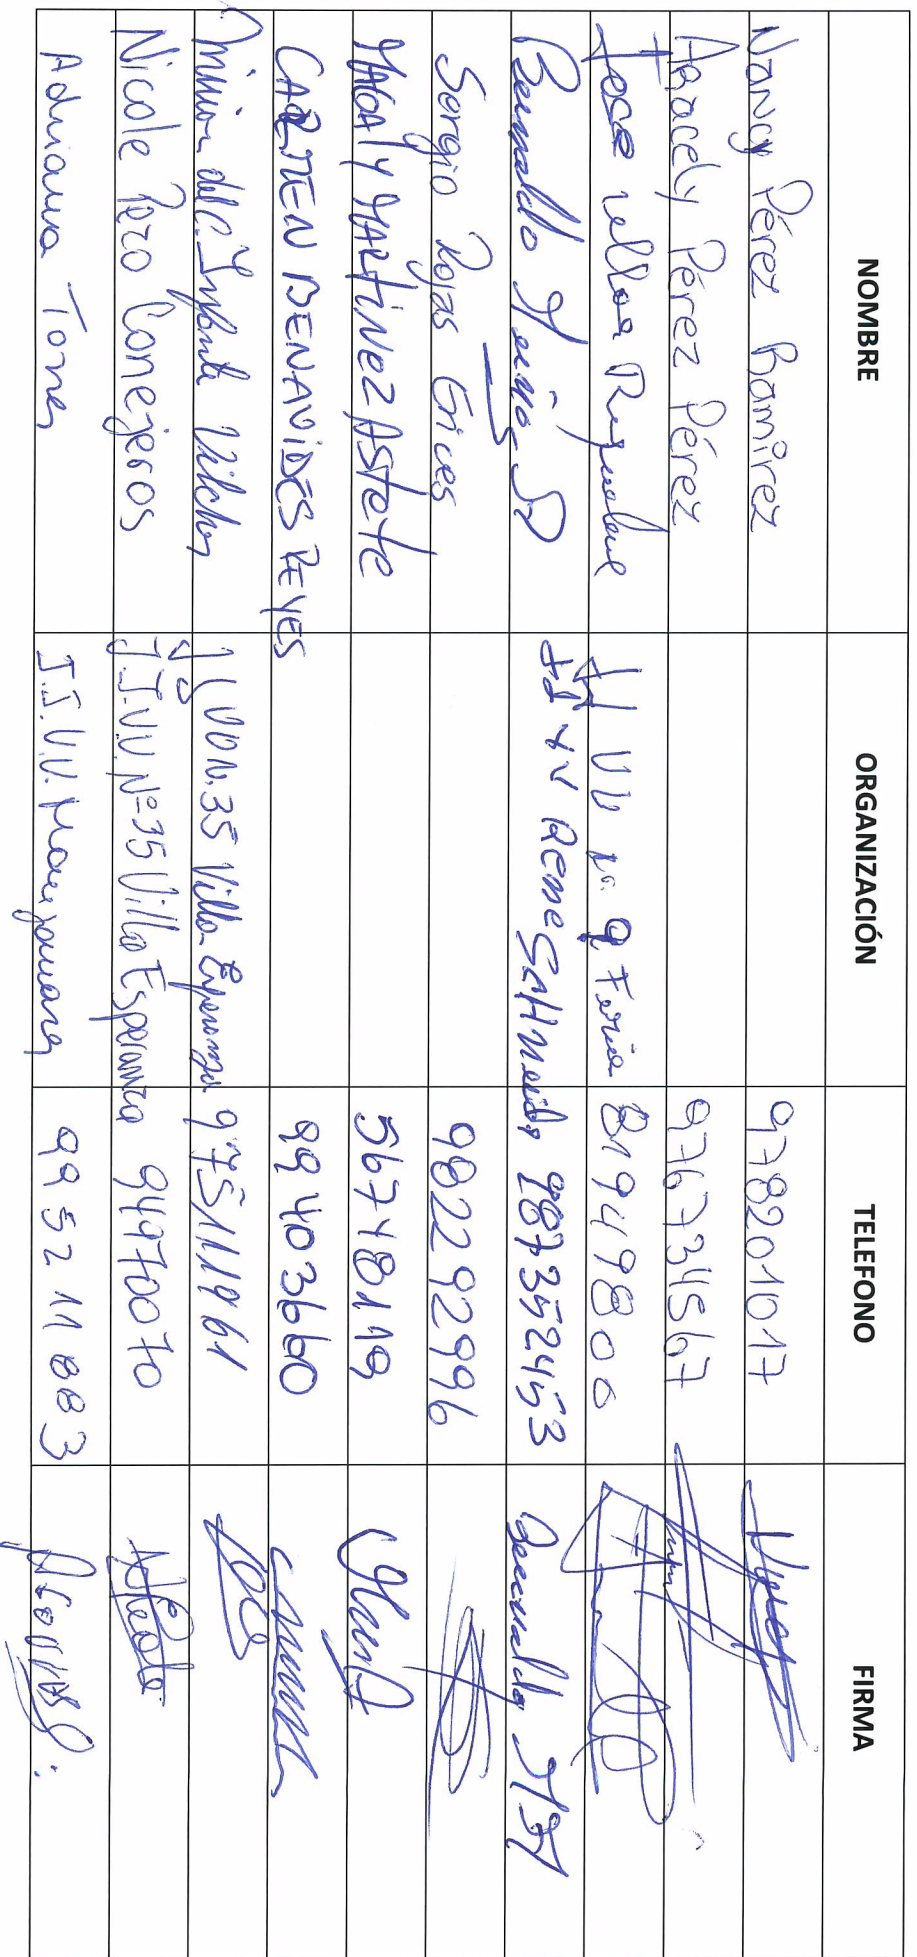 NOMBRE ORGANIZACIÓN TELEFONO FIRMA
Nancy Pérez Ramirez 978201017
Aracely Pérez Pérez 976734567
Jose Riquelme JJ VV nº 9 Feria 81949806
Bernaldo JJ VV Rene 987352453 Bernaldo
Sergio Rojas Erices 982292996
MAGALY MARTINEZ AStete 56748119
CARMEN BENAVIDES REYES 99403660
Miriam del C. Infante Vilches JJ VV N.35 Villa Esperanza 975111961
Nicole Pozo Conejeros J.J.V.V. Nº 35 Villa Esperanza 94970070
Adriana Torres J.J.V.V. 995211883